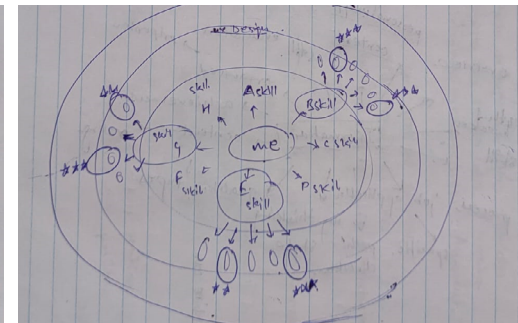 Design
***
skill
Askill
Bskill
skill
me
C skill
H
F
skill
D skill
E
skill
***
**